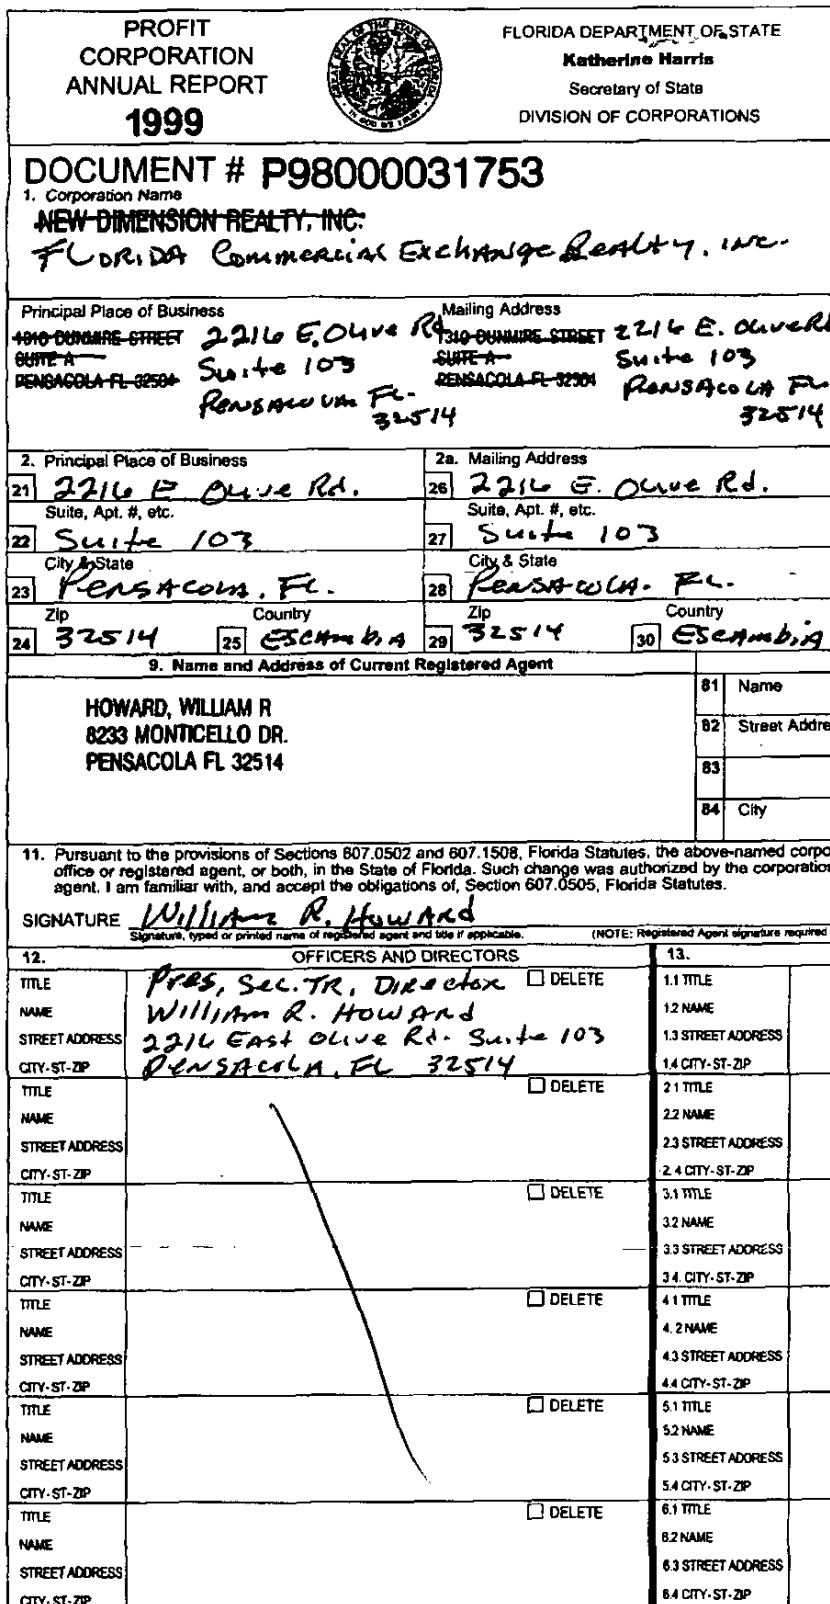 PROFIT
CORPORATION
ANNUAL REPORT
1999
FLORIDA DEPARTMENT OF STATE
Katherine Harris
Secretary of State
DIVISION OF CORPORATIONS
DOCUMENT # P98000031753
1. Corporation Name
NEW DIMENSION REALTY, INC.
FLORIDA Commercial Exchange Realty, INC.
Principal Place of Business
1310 DUNMIRE STREET
SUITE A
PENSACOLA FL 32504
2216 E. Olive Rd
Suite 103
PENSACOLA FL.
32514
Mailing Address
1310 DUNMIRE STREET
SUITE A
PENSACOLA FL 32504
2216 E. Olive Rd
Suite 103
PENSACOLA FL
32514
2. Principal Place of Business
21 2216 E Olive Rd.
Suite, Apt. #, etc.
22 Suite 103
City & State
23 PENSACOLA, FL.
Zip
24 32514
Country
25 ESCAMBIA
2a. Mailing Address
26 2216 E. Olive Rd.
Suite, Apt. #, etc.
27 Suite 103
City & State
28 PENSACOLA. FL.
Zip
29 32514
Country
30 ESCAMBIA
9. Name and Address of Current Registered Agent
HOWARD, WILLIAM R
8233 MONTICELLO DR.
PENSACOLA FL 32514
81 Name
82 Street Addre
83
84 City
11. Pursuant to the provisions of Sections 607.0502 and 607.1508, Florida Statutes, the above-named corpo
office or registered agent, or both, in the State of Florida. Such change was authorized by the corporation
agent. I am familiar with, and accept the obligations of, Section 607.0505, Florida Statutes.
SIGNATURE William R. Howard
Signature, typed or printed name of registered agent and title if applicable.
(NOTE: Registered Agent signature required
12. OFFICERS AND DIRECTORS
13.
TITLE Pres, Sec. TR, Director DELETE
NAME William R. Howard
STREET ADDRESS 2216 East Olive Rd. Suite 103
CITY-ST-ZIP PENSACOLA, FL 32514
1.1 TITLE
1.2 NAME
1.3 STREET ADDRESS
1.4 CITY-ST-ZIP
TITLE DELETE
NAME
STREET ADDRESS
CITY-ST-ZIP
2.1 TITLE
2.2 NAME
2.3 STREET ADDRESS
2.4 CITY-ST-ZIP
TITLE DELETE
NAME
STREET ADDRESS
CITY-ST-ZIP
3.1 TITLE
3.2 NAME
3.3 STREET ADDRESS
3.4. CITY-ST-ZIP
TITLE DELETE
NAME
STREET ADDRESS
CITY-ST-ZIP
4.1 TITLE
4.2 NAME
4.3 STREET ADDRESS
4.4 CITY-ST-ZIP
TITLE DELETE
NAME
STREET ADDRESS
CITY-ST-ZIP
5.1 TITLE
5.2 NAME
5.3 STREET ADDRESS
5.4 CITY-ST-ZIP
TITLE DELETE
NAME
STREET ADDRESS
CITY-ST-ZIP
6.1 TITLE
6.2 NAME
6.3 STREET ADDRESS
6.4 CITY-ST-ZIP